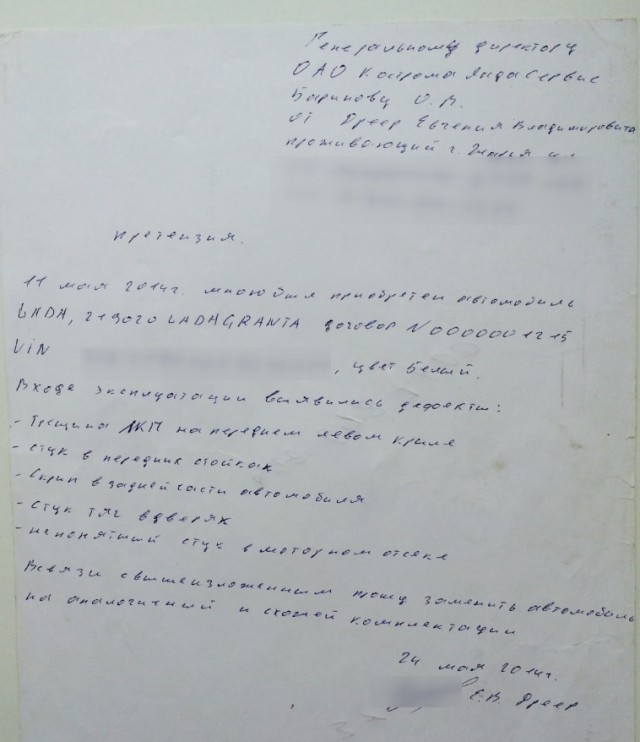 Генеральному директору
ОАО Кострома Лада Сервис
Баринову О.В.
от Дреер Евгения Владимировича
проживающий г.
претензия.
11 мая 2014г. мною был приобретен автомобиль
LADA, 219010 LADAGRANTA договор N0000001215
ViN , цвет Белый.
Входе эксплуатации выявились дефекты:
- Трещина ЛКП на переднем левом крыле
- Стук в передних стойках
- Скрип в задней части автомобиля
- Стук тяг в дверях
- непонятный стук в моторном отсеке
Всвязи свышеизложенным прошу заменить автомобиль
на аналогичный и схожей комплектации
24 мая 2014г.
Е.В. Дреер